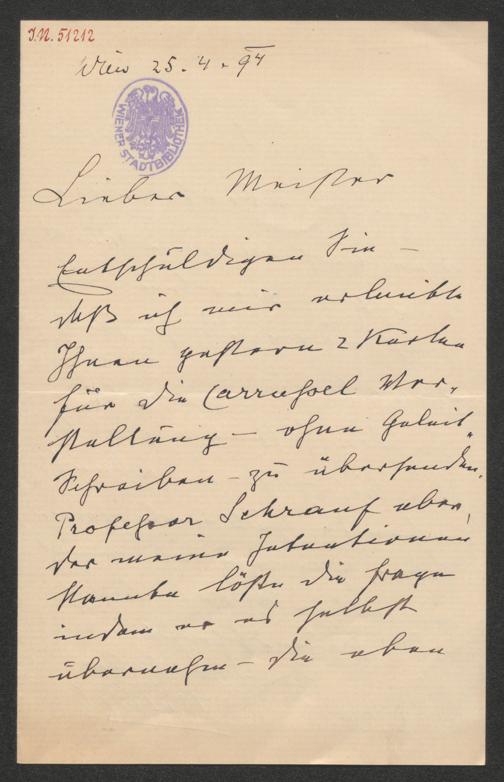 J.N. 51212
Wien 25. 4. 94
WIENER STADTBIBLIOTHEK
Lieber Meister
Entschuldigen Sie –
daß ich mir erlaubte
Ihnen gestern 2 Karten
für die Carroussel Vor-
stellung – ohne Geleit-
Schreiben – zu übersenden.
Professor Schrauf aber,
der meine Intentionen
kannte löste die Frage
indem er es selbst
übernahm – die eben